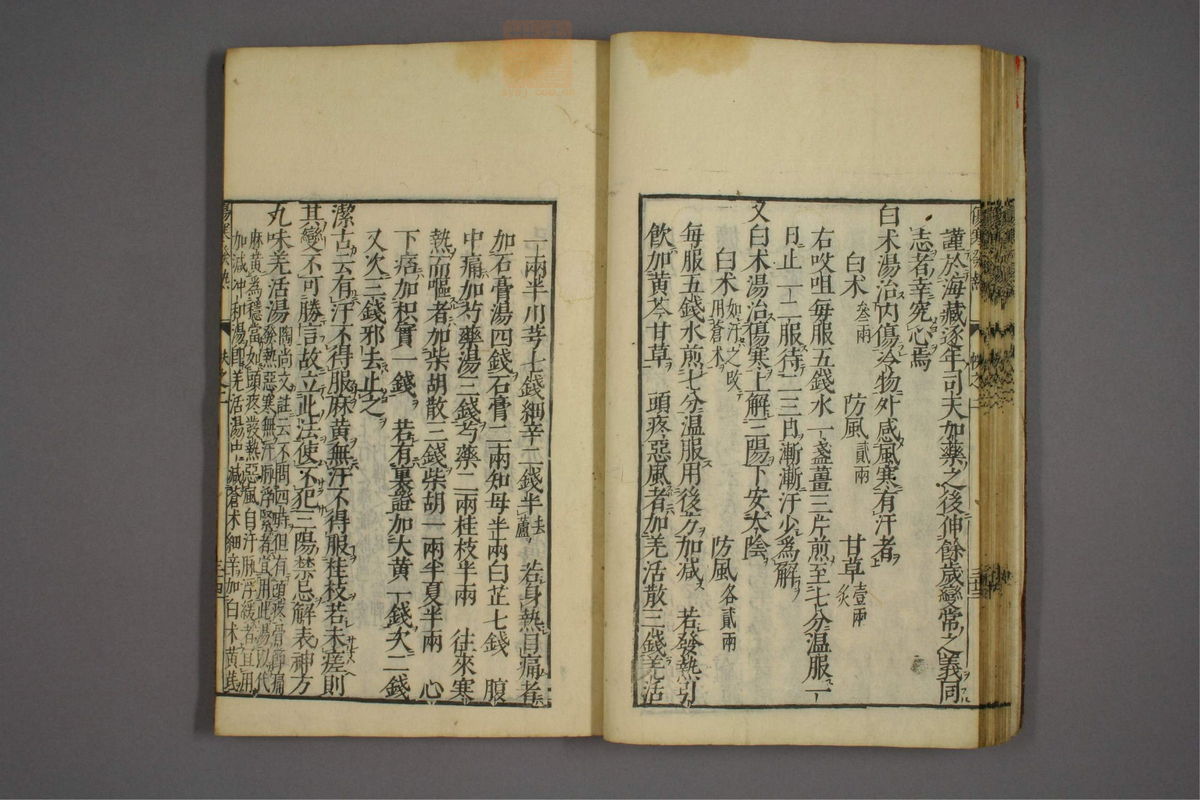 謹於海藏逐年司天加藥之後伸餘歲變常之義同
志者幸究心焉
白术湯治內傷冷物外感風寒有汗者
白术 叁兩 防風 貳兩 甘草 壹兩 炙
右㕮咀每服五錢水一盞薑三片煎至七分温服一
日止一二服待二三日漸漸汗少爲解
又白术湯治傷寒上解三陽下安太陰
白术 如汗之改用蒼术 防風 各貳兩
每服五錢水煎七分温服用後方加减 若發熱引
飲加黄芩甘草 頭疼惡風者加羌活散三錢羌活
一兩半川芎七錢細辛二錢半 去蘆 若身熱目痛者
加石膏湯四錢石膏二兩知母半兩白芷七錢 腹
中痛加芍藥湯三錢芍藥二兩桂枝半兩 往來寒
熱而嘔者加柴胡散三錢柴胡一兩半夏半兩 心
下痞加枳實一錢 若有裏證加大黄一錢次二錢
又次三錢邪去止之
潔古云有汗不得服麻黄無汗不得服桂枝若未瘥則
其變不可勝言故立此法使不犯三陽禁忌解表神方
九味羌活湯 陶尚文註云不問四時但有頭疼骨節痛
發熱惡寒無汗脉浮緊者宜用此湯以代
麻黄爲穩當如頭疼發熱惡風自汗脉浮緩者宜用
加減冲和湯即羌活湯中减蒼术細辛加白术黄芪